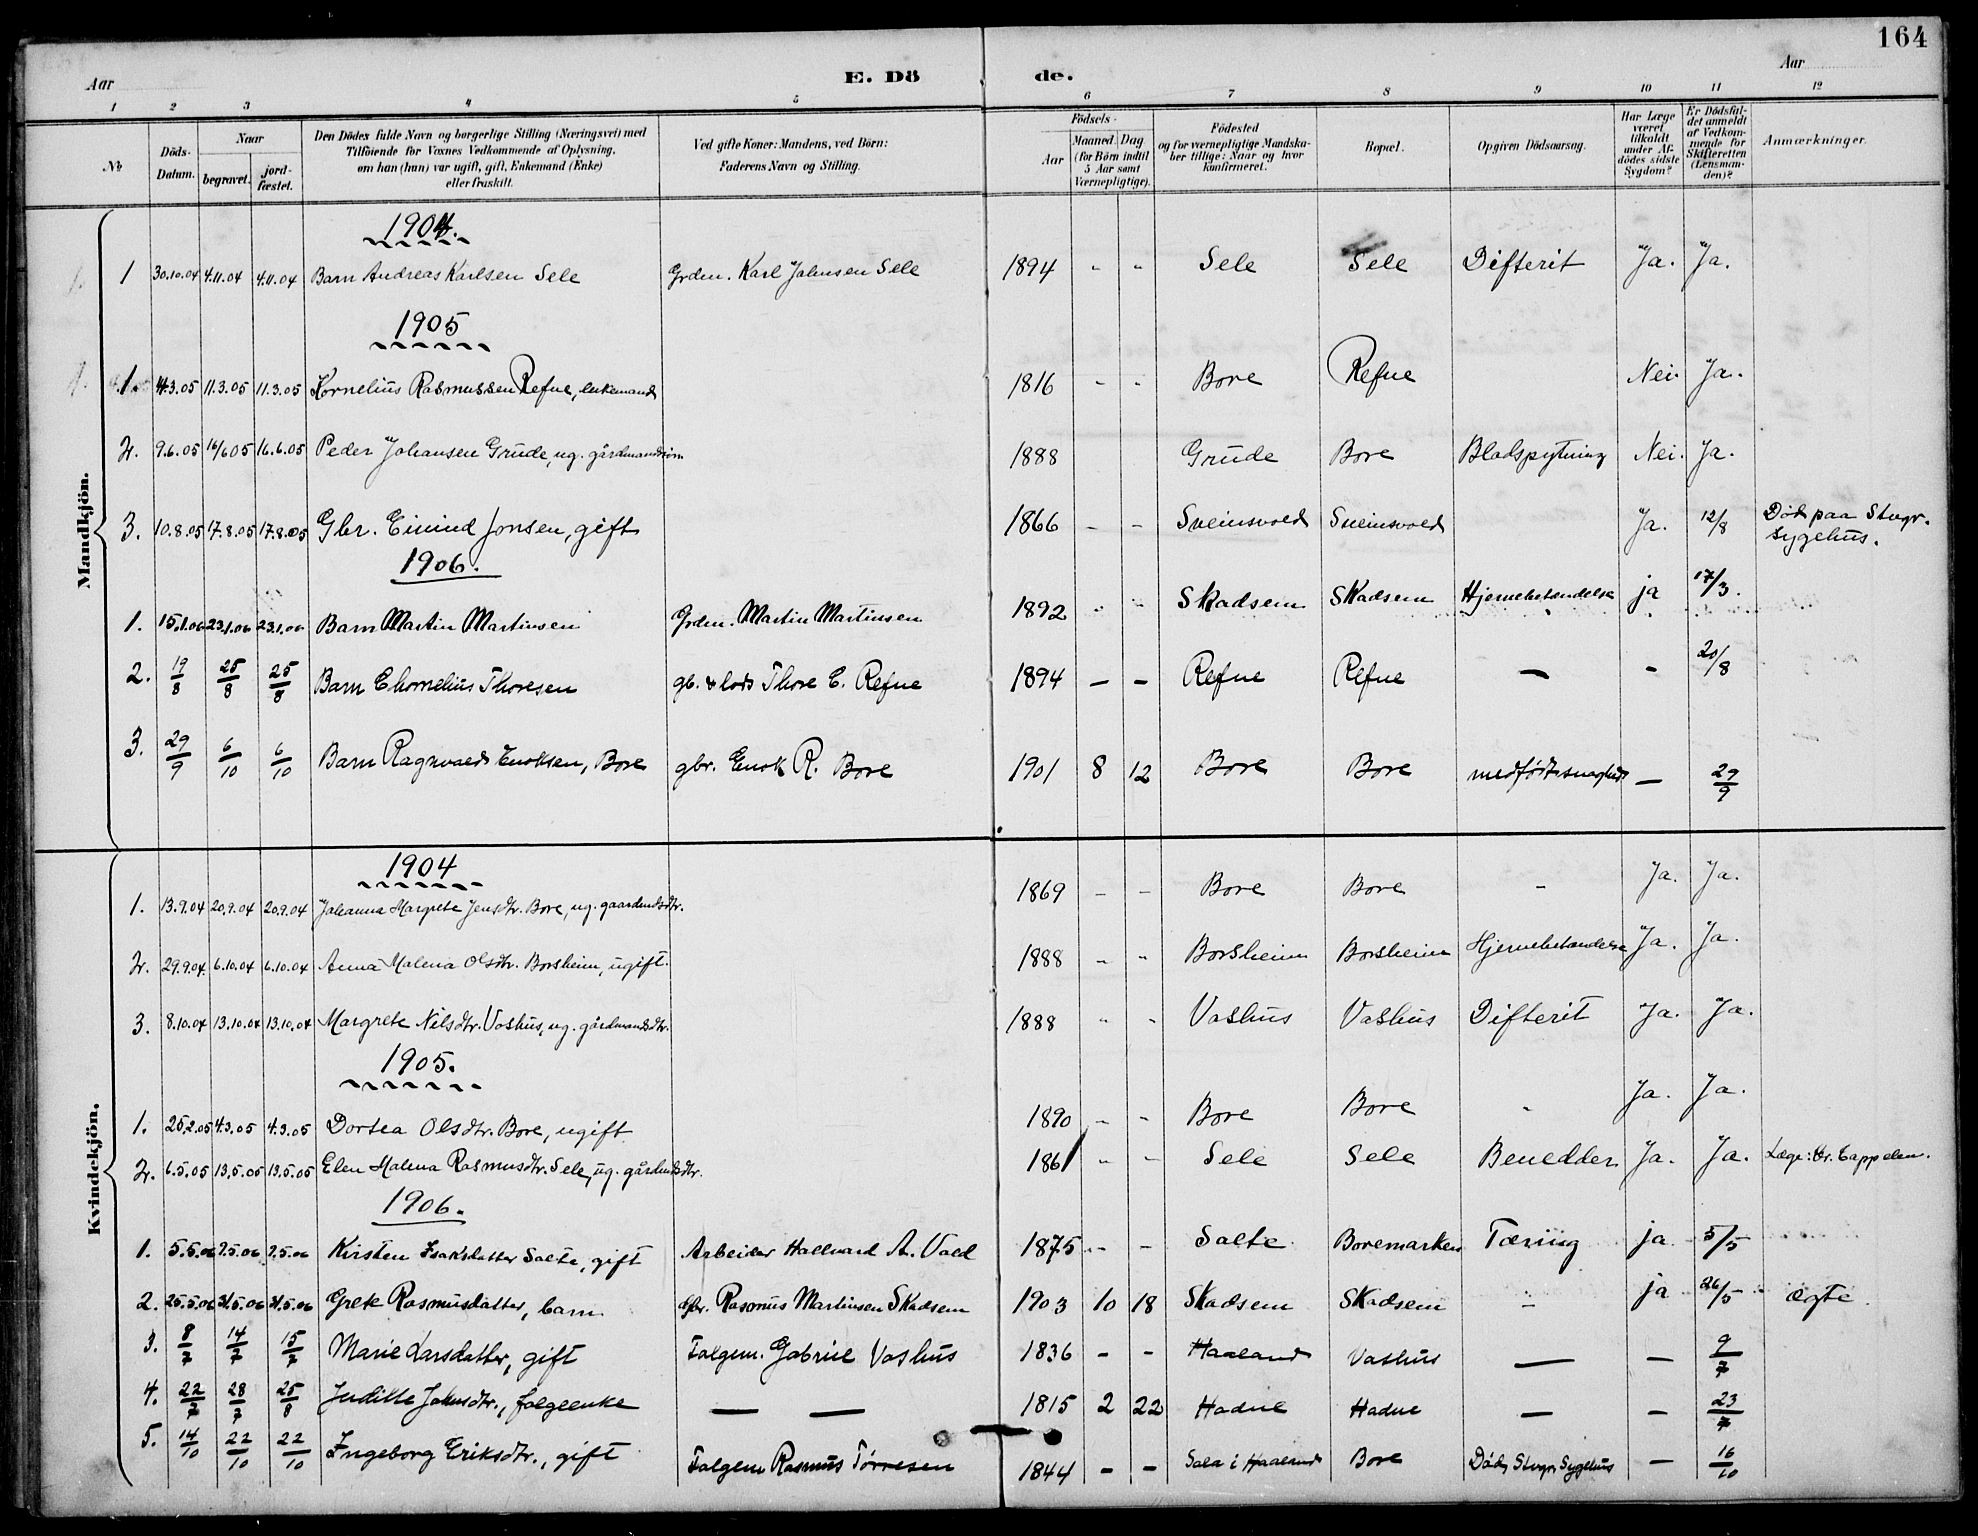 164
Aar E. Dö de. Aar
1 2 3 4 5 6 7 8 9 10 11 12
№
Döds-Datum.
Naar
begravet.
jord-fæstet.
Den Dödes fulde Navn og borgerlige Stilling (Næringsvei) med
Tilföiende for Voxnes Vedkommende af Oplysning,
om han (hun) var ugift, gift, Enkemand (Enke)
eller fraskilt.
Ved gifte Koner: Mandens, ved Börn:
Faderens Navn og Stilling.
Födsels-
Aar
Maaned. Dag.
(for Börn indtil
5 Aar samt
Værnepligtige).
Födested
og for værnepligtige Mandska-
ber tillige: Naar og hvor
konfirmeret.
Bopæl.
Opgiven Dödsaarsag.
Har Læge
været
tilkaldt
under Af-
dödes sidste
Sygdom?
Er Dödsfal-
det anmeldt
af Vedkom-
mende for
Skifteretten
(Lensman-
den)?
Anmærkninger.
Mandkjön.
1904.
1 30.10.04 4.11.04 4.11.04 Barn Andreas Karlsen Sele Grdm. Karl Johnsen Sele 1894 " " Sele Sele Difterit Ja. Ja.
1905
1. 4.3.05 11.3.05 11.3.05 Kornelius Rasmussen Refne, enkemand 1816 - - Bore Refne Nei. Ja.
2. 9.6.05 16/6 05 16.6.05 Peder Johansen Grude, ug. gårdmandssøn 1888 Grude Bore Blodspytning Nei. Ja.
3. 10.8.05 17.8.05 17.8.05 Gbr. Eivind Jonsen, gift 1866 - - Sveinsvold Sveinsvold Ja. 12/8 Död paa Stvgr.
Sygehus.
1906.
1. 15.1.06 23.1.06 23.1.06 Barn Martin Martinsen Grdm. Martin Martinsen 1892 " " Skadsem Skadsem Hjernebetændelse ja 17/3.
2. 19/8 25/8 25/8 Barn Chornelius Thoresen gb. & lods Thore C. Refne 1894 - - Refne Refne - - 20/8
3. 29/9 6/10 6/10 Barn Ragnvald Enoksen, Bore gbr. Enok R. Bore 1901 8 12 Bore Bore medfödt svaghed - 29/9
Kvindekjön.
1904
1. 13.9.04 20.9.04 20.9.04 Johanna Margrete Jensdtr. Bore, ug. gaardmdsdtr. 1869 - - Bore Bore - Ja. Ja.
2. 29.9.04 6.10.04 6.10.04 Anna Malena Olsdtr. Borsheim, ugift. 1888 - " Borsheim Borsheim Hjernebetændelse Ja. Ja.
3. 8.10.04 13.10.04 13.10.04 Margrete Nilsdtr. Vashus, ug. gårdmandsdtr. 1888 " " Vashus Vashus Difterit Ja. Ja.
1905.
1. 25.2.05 4.3.05 4.3.05 Dortea Olsdtr. Bore, ugift 1890 - - Bore Bore - Ja. Ja.
2. 6.5.05 13.5.05 13.5.05 Elen Malena Rasmusdtr. Sele, ug. gårdmdsdtr. 1861 " " Sele Sele Benedder Ja. Ja. Læge: Dr. Cappelen.
1906.
1. 5.5.06 9.5.06 9.5.06 Kirsten Isaksdatter Salte, gift Arbeider Hallvard A. Vold 1875 - - Salte Boremarken Tæring ja 5/5
2. 25.5.06 31.5.06 31.5.06 Grete Rasmusdatter, barn Gbr. Rasmus Martinsen Skadsem 1903 10 18 Skadsem Skadsem - ja 26/5 ægte
3. 8/7 14/7 15/7 Marie Larsdatter, gift Folgem. Gabriel Vashus 1836 - - Haaland Vashus - - 9/7
4. 22/7 28/7 25/8 Juditte Johnsdtr., folgeenke - - 1815 2 22 Hadne Hadne - - 23/7
5. 14/10 22/10 22/10 Ingeborg Eriksdtr., gift Folgem Rasmus Tørresen 1844 - - Sola i Haaland Bore Død, Stvgr. Sygehus - 16/10